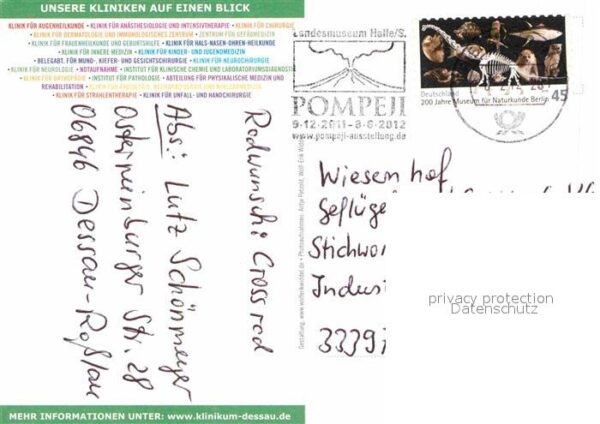 UNSERE KLINIKEN AUF EINEN BLICK
KLINIK FÜR AUGENHEILKUNDE • KLINIK FÜR ANÄSTHESIOLOGIE UND INTENSIVTHERAPIE • KLINIK FÜR CHIRURGIE
• KLINIK FÜR DERMATOLOGIE UND IMMUNOLOGISCHES ZENTRUM • ZENTRUM FÜR GEFÄßMEDIZIN
• KLINIK FÜR FRAUENHEILKUNDE UND GEBURTSHILFE • KLINIK FÜR HALS-NASEN-OHREN-HEILKUNDE
• KLINIK FÜR INNERE MEDIZIN • KLINIK FÜR KINDER- UND JUGENDMEDIZIN
• BELEGABT. FÜR MUND-, KIEFER- UND GESICHTSCHIRURGIE • KLINIK FÜR NEUROCHIRURGIE
• KLINIK FÜR NEUROLOGIE • NOTAUFNAHME • INSTITUT FÜR KLINISCHE CHEMIE UND LABORATORIUMSDIAGNOSTIK
• KLINIK FÜR ORTHOPÄDIE • INSTITUT FÜR PATHOLOGIE • ABTEILUNG FÜR PHYSIKALISCHE MEDIZIN UND
REHABILITATION •
• KLINIK FÜR STRAHLENTHERAPIE • KLINIK FÜR UNFALL- UND HANDCHIRURGIE
Redwunsch: Crossrad
Abs: Lutz Schönmeyer
Osternienburger Str. 28
06846 Dessau-Roßlau
MEHR INFORMATIONEN UNTER: www.klinikum-dessau.de
Landesmuseum Halle/S.
POMPEJI
9-12-2011-8-6-2012
www.pompeji-ausstellung.de
Deutschland
200 Jahre Museum für Naturkunde Berlin
45
Wiesenhof
Geflüge
Stichwor
Indus
3339
privacy protection
Datenschutz